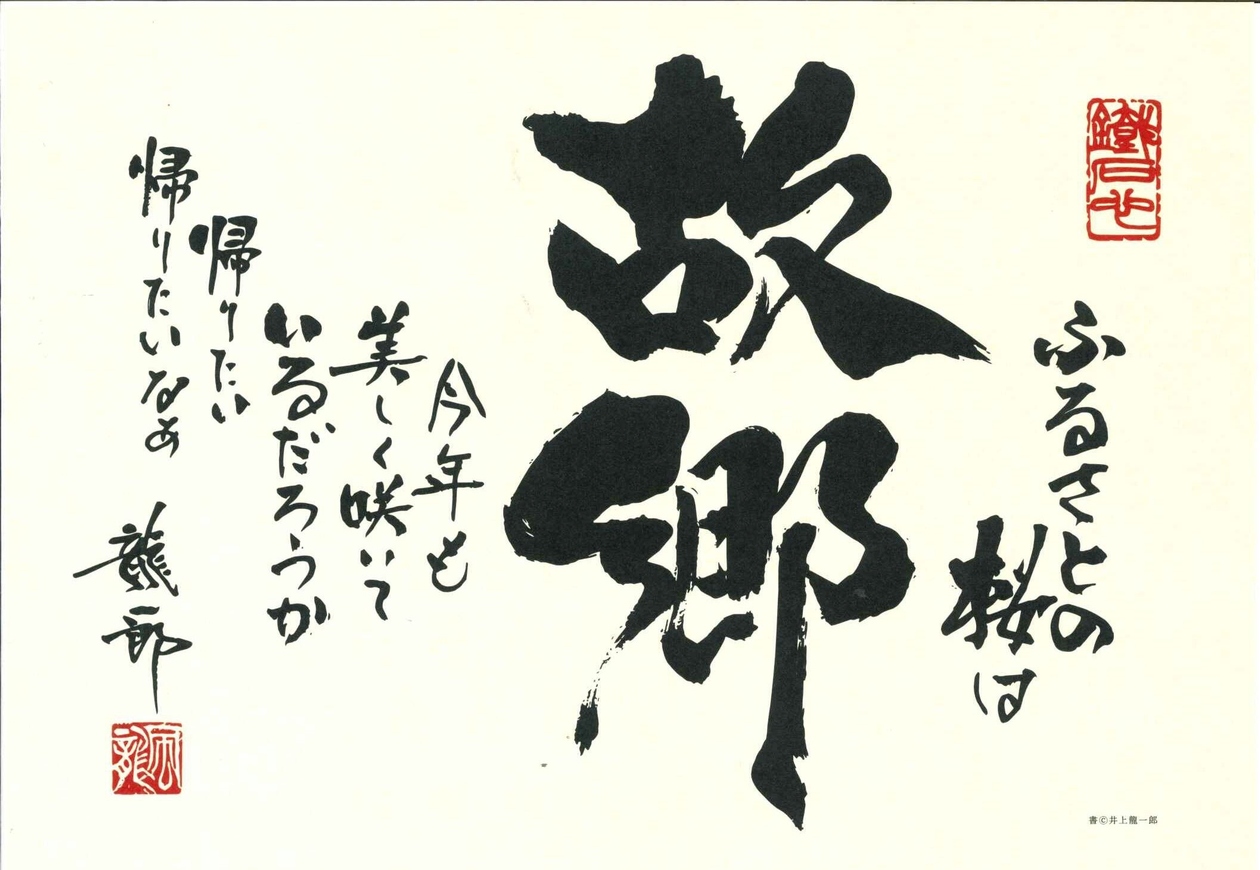 ふるさとの
桜は
故郷
今年も
美しく咲いて
いるだろうか
帰りたい
帰りたいなぁ
龍一郎
書©井上龍一郎